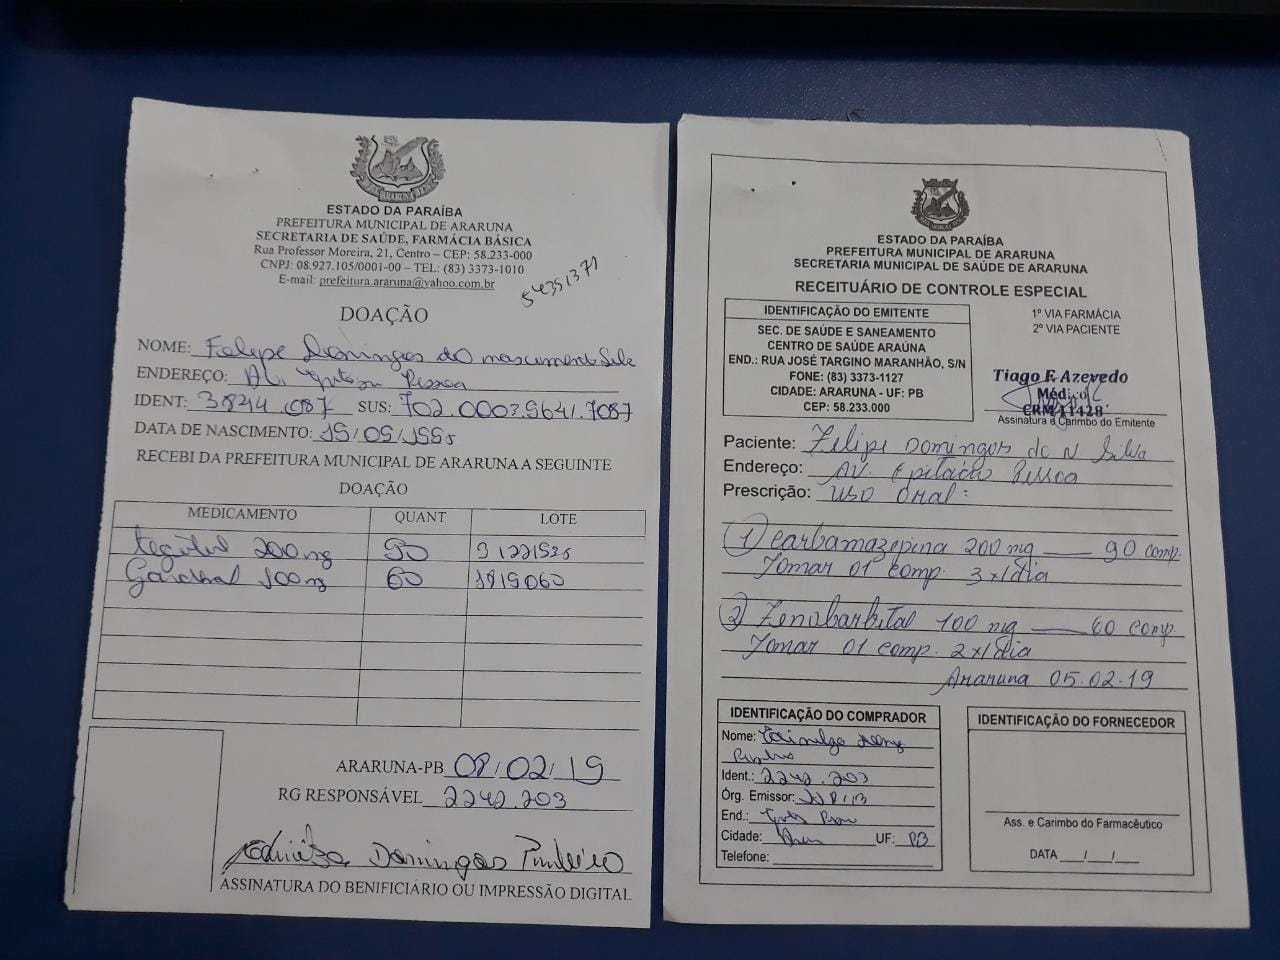 ESTADO DA PARAÍBA
PREFEITURA MUNICIPAL DE ARARUNA
SECRETARIA DE SAÚDE, FARMÁCIA BÁSICA
Rua Professor Moreira, 21, Centro – CEP: 58.233-000
CNPJ: 08.927.105/0001-00 – TEL: (83) 3373-1010
E-mail: prefeitura.araruna@yahoo.com.br
54351371
DOAÇÃO
NOME: Felipe Domingos do nascimento Silva
ENDEREÇO: Pessoa
IDENT: 3844.087 SUS: 702.0003.9641.7087
DATA DE NASCIMENTO: 19/05/1995
RECEBI DA PREFEITURA MUNICIPAL DE ARARUNA A SEGUINTE
DOAÇÃO
MEDICAMENTO QUANT LOTE
200mg 90
Gardenal 100mg 60 1819060
ARARUNA-PB 08/02/19
RG RESPONSÁVEL 2242.203
Domingos Pinheiro
ASSINATURA DO BENIFICIÁRIO OU IMPRESSÃO DIGITAL
ESTADO DA PARAÍBA
PREFEITURA MUNICIPAL DE ARARUNA
SECRETARIA MUNICIPAL DE SAÚDE DE ARARUNA
RECEITUÁRIO DE CONTROLE ESPECIAL
IDENTIFICAÇÃO DO EMITENTE
SEC. DE SAÚDE E SANEAMENTO
CENTRO DE SAÚDE ARAÚNA
END.: RUA JOSÉ TARGINO MARANHÃO, S/N
FONE: (83) 3373-1127
CIDADE: ARARUNA - UF: PB
CEP: 58.233.000
1º VIA FARMÁCIA
2º VIA PACIENTE
Tiago F. Azevedo
Médico
CRM 11428
Assinatura e Carimbo do Emitente
Paciente: Felipe Domingos do N Silva
Endereço: AV. Epitácio Pessoa
Prescrição: USO Oral:
1) Carbamazepina 200 mg — 90 comp.
Tomar 01 comp. 3x/dia
2) Fenobarbital 100 mg — 60 comp.
Tomar 01 comp. 2x/dia
Araruna 05.02.19
IDENTIFICAÇÃO DO COMPRADOR
Nome:
Ident.: 2242.203
Órg. Emissor:
End.:
Cidade: UF: PB
Telefone:
IDENTIFICAÇÃO DO FORNECEDOR
Ass. e Carimbo do Farmacêutico
DATA __/__/__